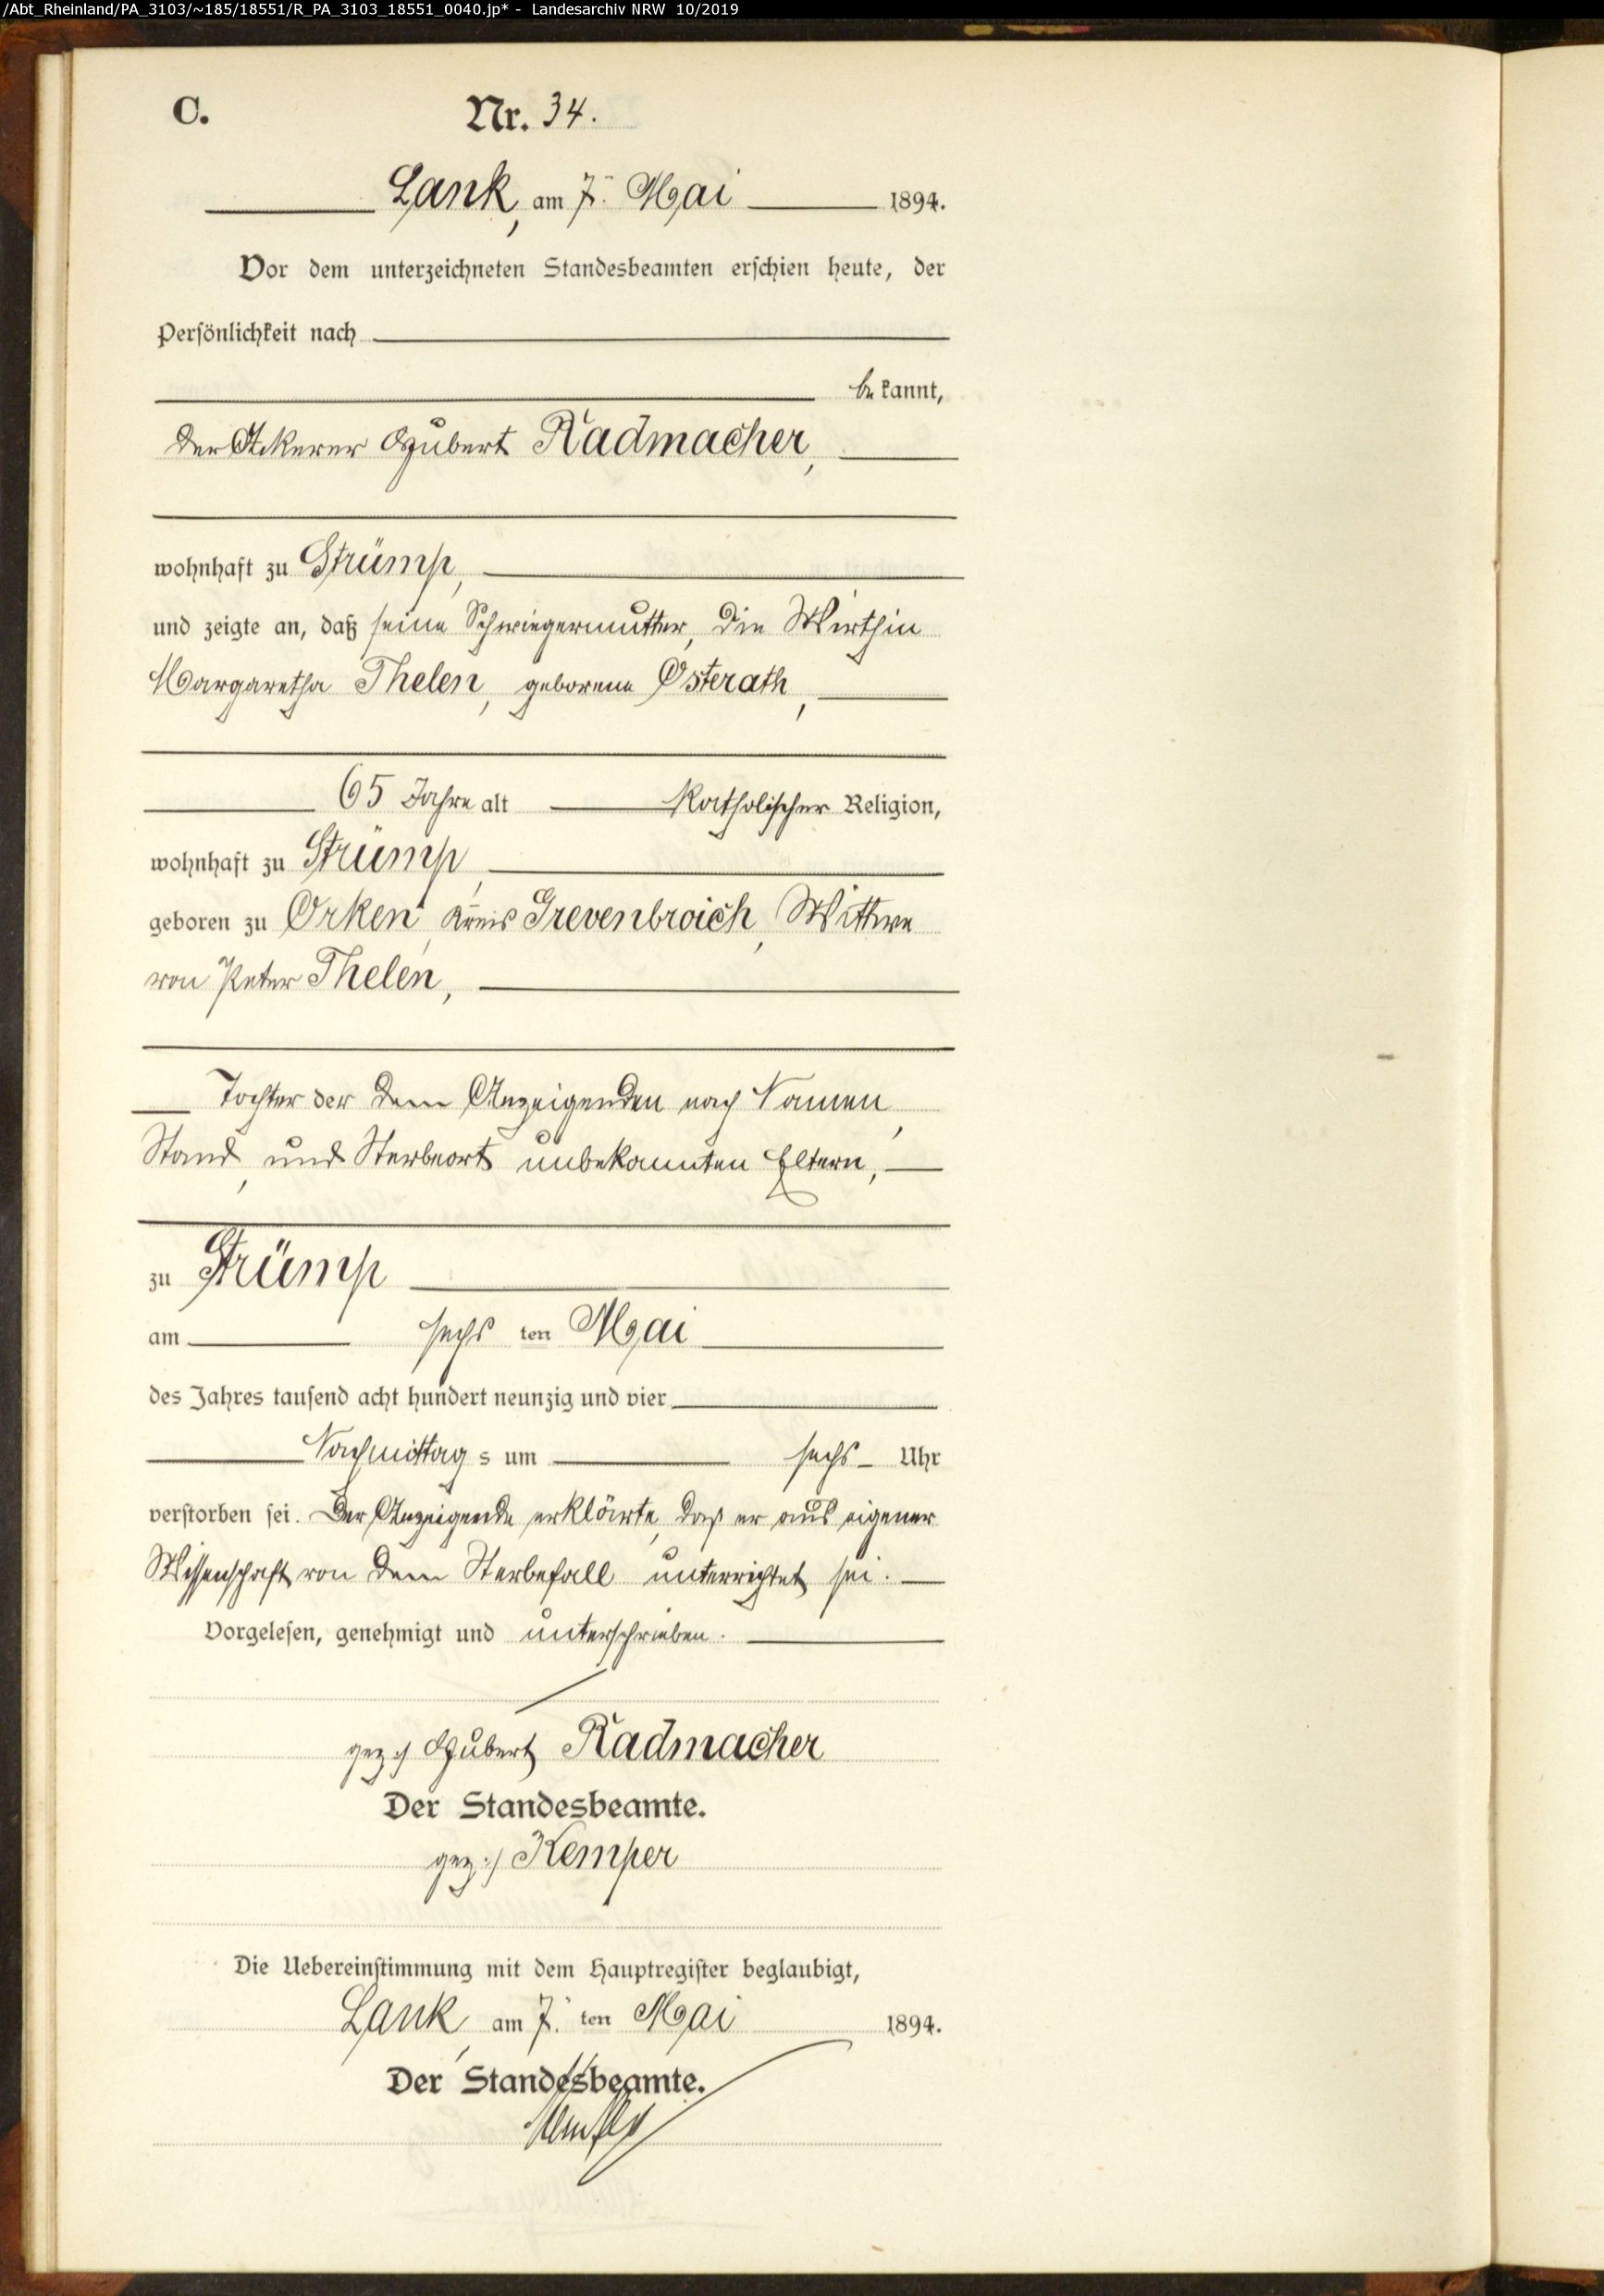 /Abt_Rheinland/PA_3103/~185/18551/R_PA_3103_18551_0040.jp* - Landesarchiv NRW 10/2019
C. Nr. 34.
Lank, am 7. Mai 1894.
Vor dem unterzeichneten Standesbeamten erschien heute, der
Persönlichkeit nach
be kannt,
der Ackerer Hubert Radmacher,
wohnhaft zu Strümp,
und zeigte an, daß seine Schwiegermutter, die Wirthin
Margaretha Thelen, geborene Osterath,
65 Jahre alt katholischer Religion,
wohnhaft zu Strümp,
geboren zu Orken, Kreis Grevenbroich, Wittwe
von Peter Thelen,
Tochter der dem Anzeigenden nach Namen,
Stand, und Sterbeort unbekannten Eltern,
zu Strümp
am sechs ten Mai
des Jahres tausend acht hundert neunzig und vier
Nachmittag s um sechs Uhr
verstorben sei. Der Anzeigende erklärte, daß er aus eigener
Wissenschaft von dem Sterbefall unterrichtet sei.
Vorgelesen, genehmigt und unterschrieben.
gez:/ Hubert Radmacher
Der Standesbeamte.
gez:/ Kemper
Die Uebereinstimmung mit dem Hauptregister beglaubigt,
Lank, am 7. ten Mai 1894.
Der Standesbeamte.
Kemper